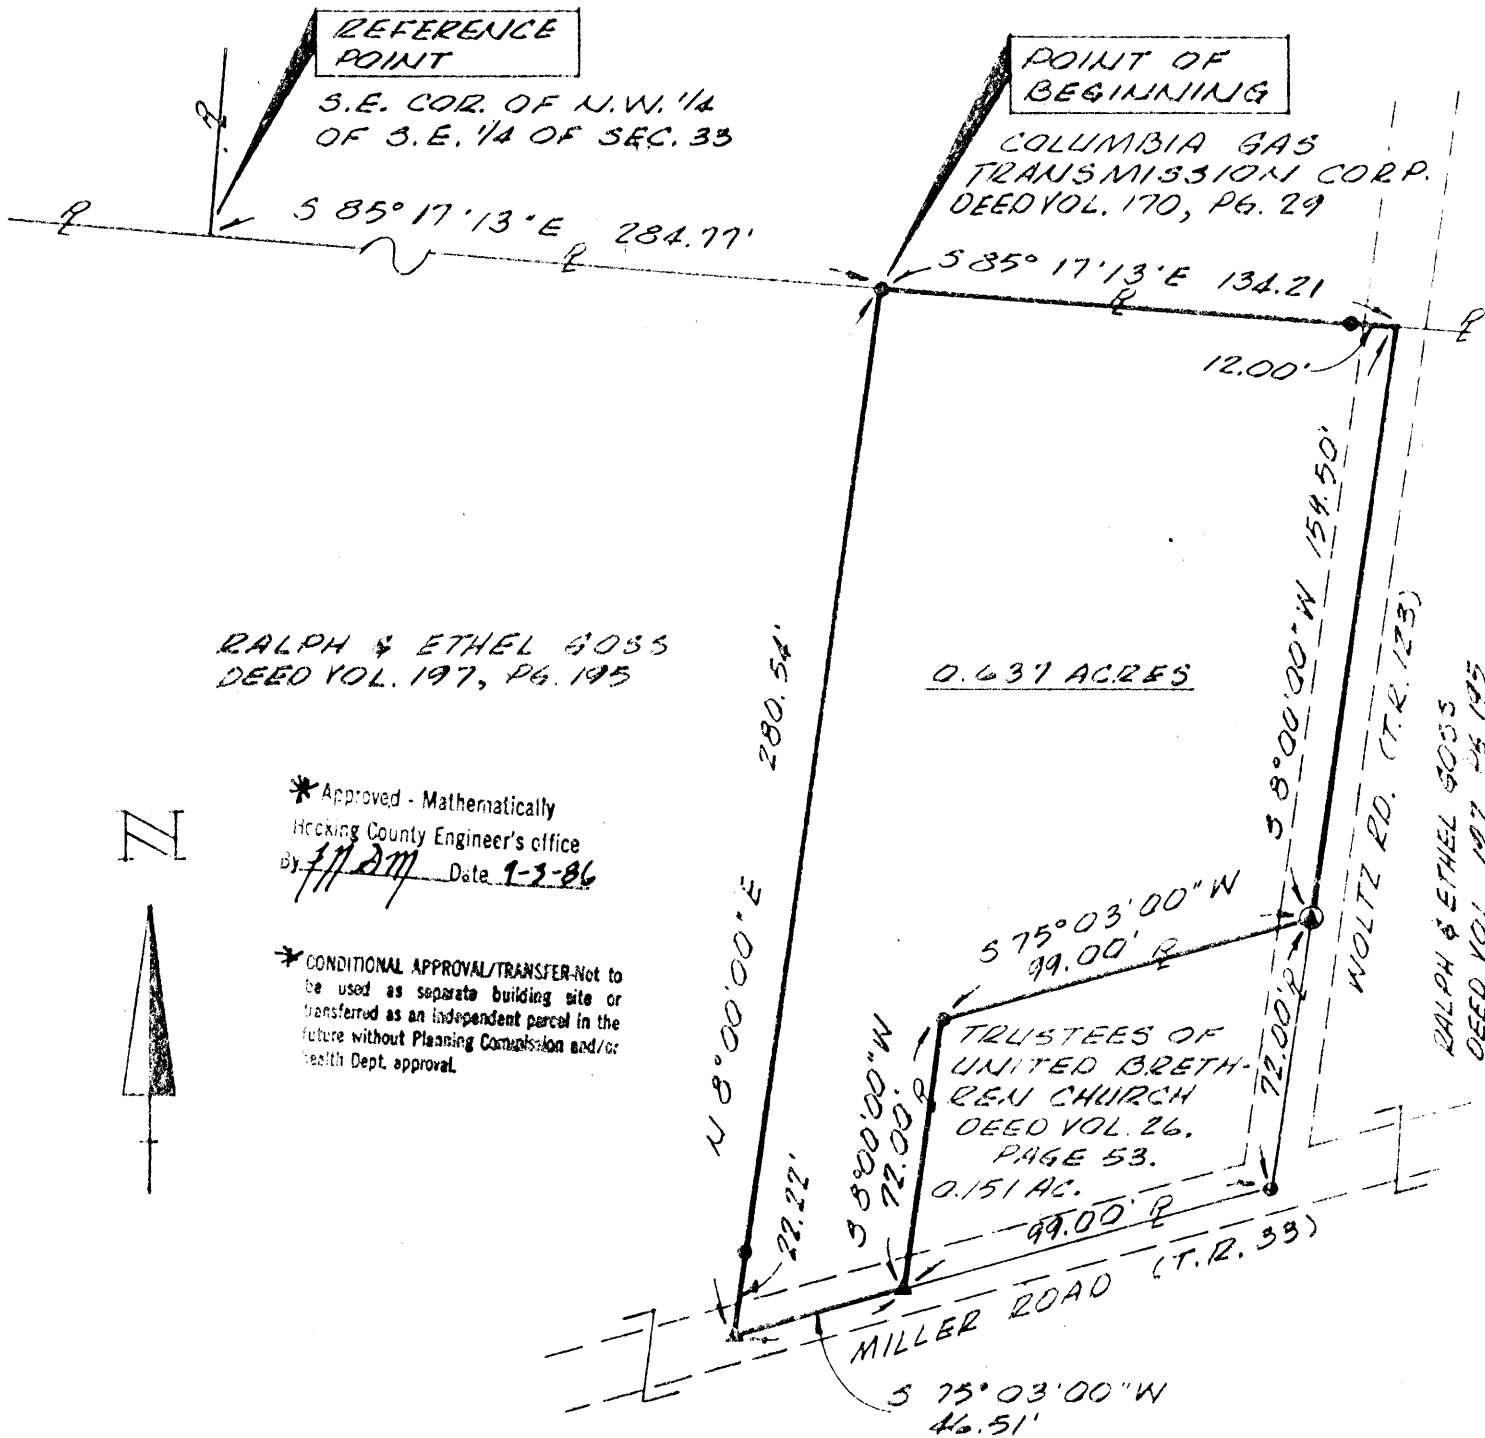 REFERENCE
POINT
S.E. COR. OF N.W. 1/4
OF S.E. 1/4 OF SEC. 33
POINT OF
BEGINNING
COLUMBIA GAS
TRANSMISSION CORP.
DEED VOL. 170, PG. 29
S 85° 17' 13" E 284.77'
S 85° 17' 13" E 134.21
12.00'
S 8°00'00" W 154.50'
280.54'
N 8°00'00" E
RALPH & ETHEL GOSS
DEED VOL. 197, PG. 195
0.637 ACRES
WOLTZ RD. (T.R. 123)
RALPH & ETHEL GOSS
DEED VOL. 197 PG 195
N
* Approved - Mathematically
Hocking County Engineer's office
By Date 9-3-86
* CONDITIONAL APPROVAL/TRANSFER-Not to
be used as separate building site or
transferred as an independent parcel in the
future without Planning Commission and/or
Health Dept. approval.
S 75° 03' 00" W
99.00'
S 8°00'00" W
72.00'
72.00'
TRUSTEES OF
UNITED BRETH-
REN CHURCH
DEED VOL. 26,
PAGE 53.
0.151 AC.
99.00'
22.22'
MILLER ROAD (T.R. 33)
S 75° 03' 00" W
46.51'